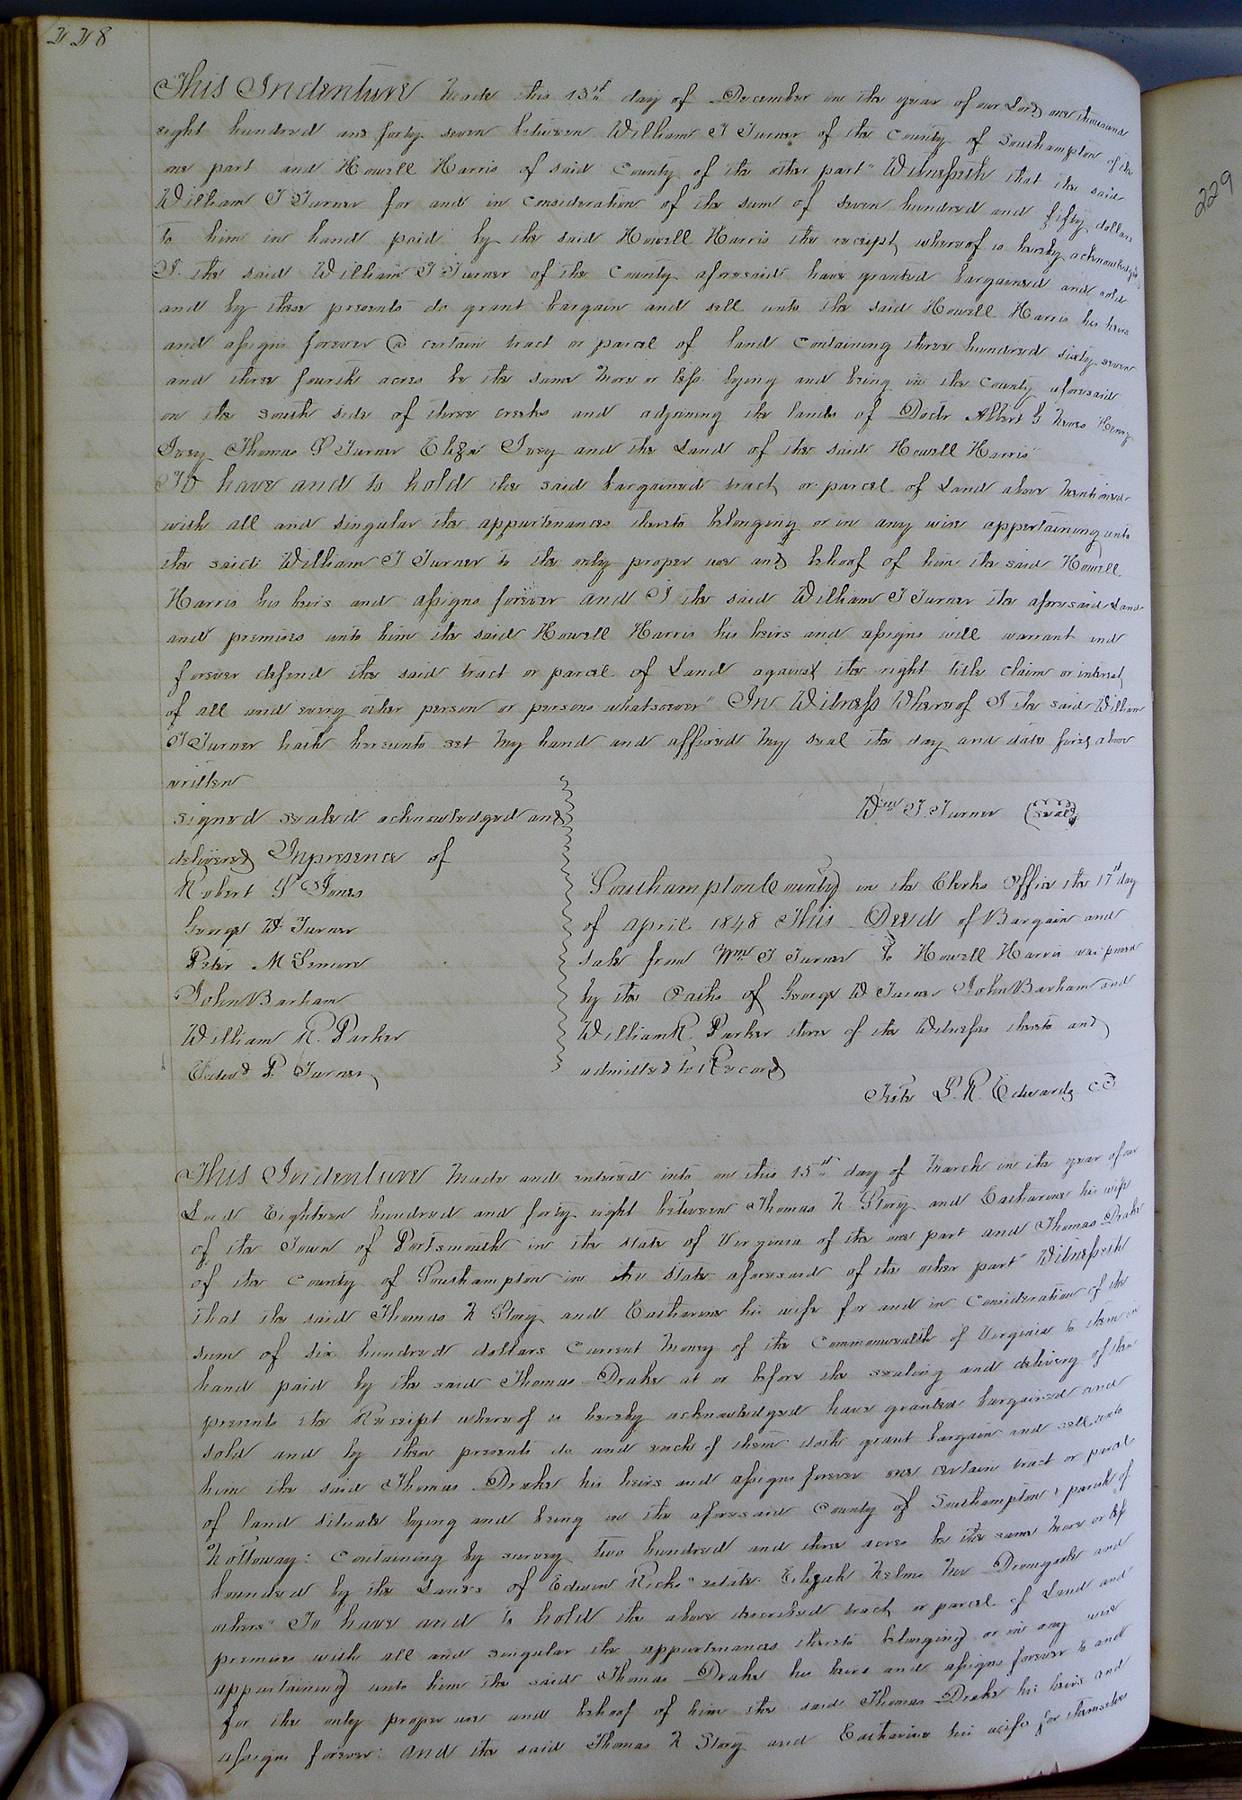 228
This Indenture Made this 15th day of December in the year of our Lord one thousand
eight hundred and forty seven between William T Turner of the County of Southampton of the
one part and Howell Harris of said County of the other part" Witnesseth that the said
William T Turner for and in consideration of the sum of seven hundred and fifty dollars
to him in hand paid by the said Howell Harris the receipt whereof is hereby acknowledged
I the said William T Turner of the County aforesaid have granted bargained and sold
and by these presents do grant bargain and sell unto the said Howell Harris his heirs
and assigns forever a certain tract or parcel of land Containing three hundred sixty seven
and three fourth acres be the same More or less lying and being in the County aforesaid
on the south side of three creeks and adjoining the lands of Doctr Albert G Henry
Ivey Thomas P Turner Eliza Ivey and the Land of the said Howell Harris"
To have and to hold the said bargained tract or parcel of Land above Mentioned
with all and singular the appurtenances thereto belonging or in any wise appertaining unto
the said William T Turner to the only proper use and behoof of him the said Howell
Harris his heirs and assigns forever and I the said William T Turner the aforesaid Land
and premises unto him the said Howell Harris his heirs and assigns will warrant and
forever defend the said tract or parcel of Land against the right title claim or interest
of all and every other person or persons whatsoever" In Witness Whereof I the said William
T Turner hath hereunto set My hand and affixed My seal the day and date first above
written
Wm T. Turner (Seal)
signed sealed acknowledged and
delivered In presence of
Robert S Jones
George W Turner
Peter McLemore
John Barham
William R. Parker
Edwd P. Turner
Southampton County in the Clerks Office the 17th day
of April 1848 This Deed of Bargain and
sale from Wm T Turner To Howell Harris was proved
by the Oaths of George W Turner John Barham and
William R. Parker three of the Witnesses thereto and
admitted to Record
Teste L. R. Edwards C C
This Indenture Made and entered into on this 15th day of March in the year of our
Lord Eighteen hundred and forty eight between Thomas N Story and Catharine his wife
of the Town of Portsmouth in the state of Virginia of the one part and Thomas Drake
of the County of Southampton in the State aforesaid of the other part" Witnesseth
that the said Thomas N Story and Catharine his wife for and in Consideration of the
sum of six hundred dollars Current Money of the Commonwealth of Virginia to them in
hand paid by the said Thomas Drake at or before the sealing and delivery of these
presents the Receipt whereof is hereby acknowledged have granted bargained and
sold and by these presents do and each of them doth grant bargain and sell unto
him the said Thomas Drake his heirs and assigns forever one certain tract or parcel
of land situate lying and being in the aforesaid County of Southampton & parish of
Nottoway: Containing by survey two hundred and three acres be the same More or less
bounded by the Lands of Edwin Ricks" estate Elijah Helms and
others" To have and to hold the above described tract or parcel of Land and
premises with all and singular the appurtenances thereto belonging or in any wise
appertaining unto him the said Thomas Drake his heirs and assigns forever to and
for the only proper use and behoof of him the said Thomas Drake his heirs and
assigns forever: and the said Thomas N Story and Catharine his wife for themselves
229